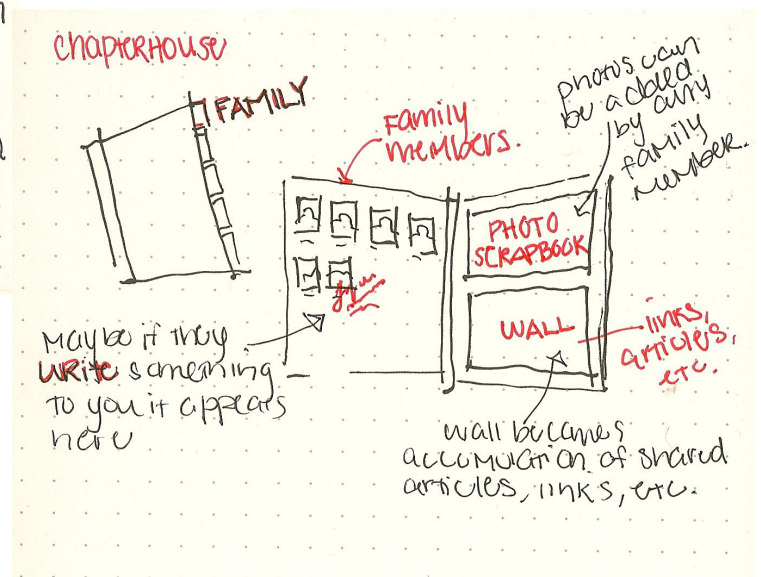 chapterhouse
FAMILY
Family
members.
photos can
be added
by any
family
member.
PHOTO
SCRAPBOOK
WALL
links,
articles,
etc.
Maybe if they
write something
to you it appears
here
wall becomes
accumulation of shared
articles, links, etc.